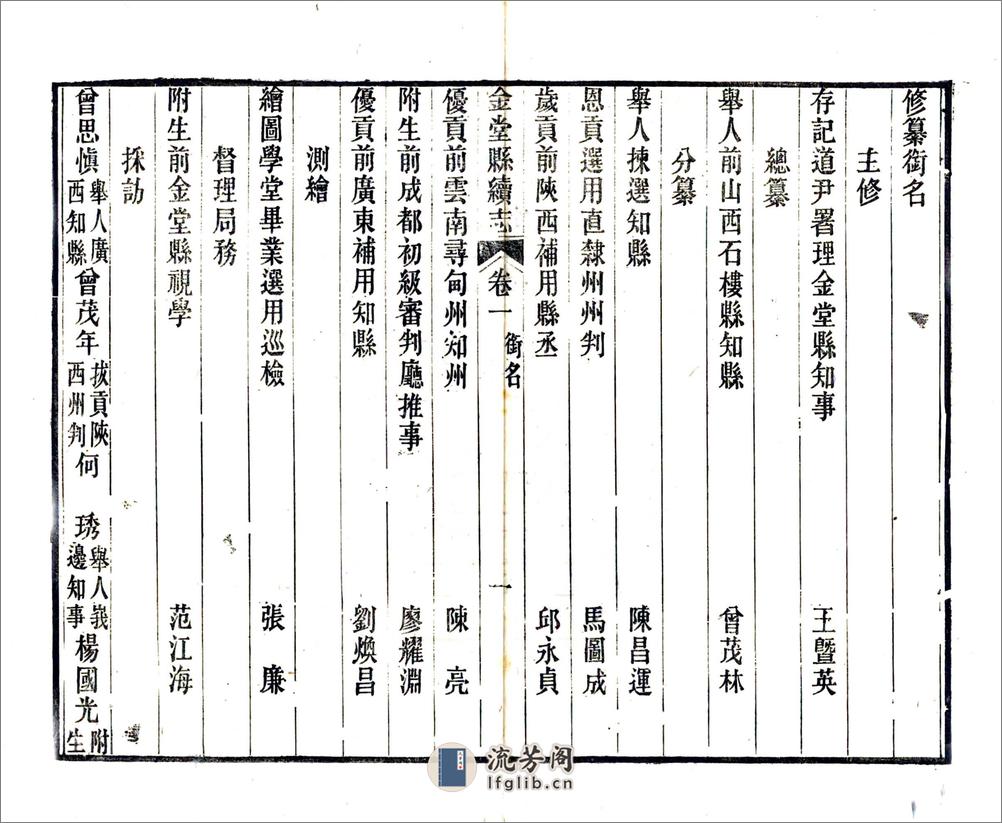 修纂銜名
主修
存記道尹署理金堂縣知事 王暨英
總纂
舉人前山西石樓縣知縣 曾茂林
分纂
舉人揀選知縣 陳昌運
恩貢選用直隸州州判 馬圖成
歲貢前陝西補用縣丞 邱永貞
金堂縣續志 卷一 銜名 一
優貢前雲南尋甸州知州 陳亮
附生前成都初級審判廳推事 廖耀淵
優貢前廣東補用知縣 劉煥昌
測繪
繪圖學堂畢業選用巡檢 張廉
督理局務
附生前金堂縣視學 范江海
採訪
曾思慎 舉人廣西知縣 曾茂年 拔貢陝西州判 何琇 舉人峩邊知事 楊國光 附生
流芳阁
lfglib.cn